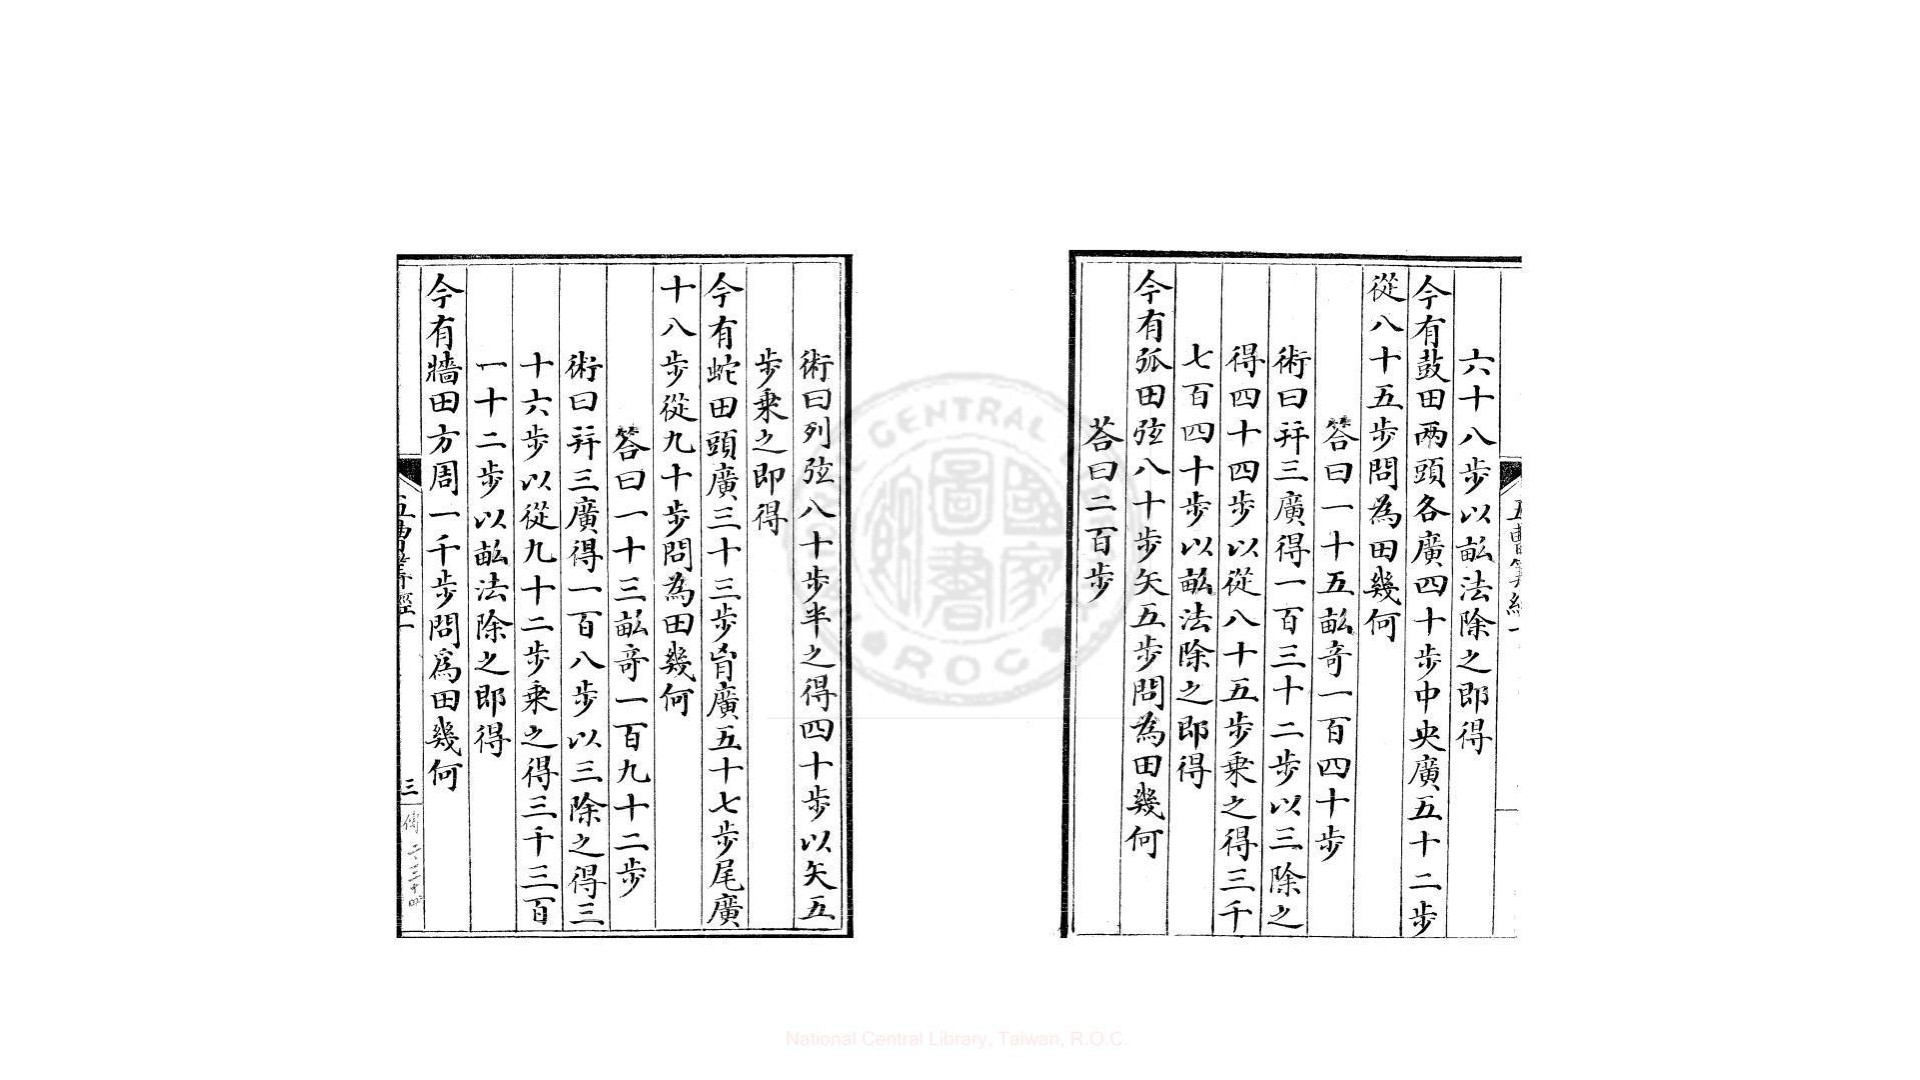 六十八步以畝法除之即得
今有鼓田兩頭各廣四十步中央廣五十二步
從八十五步問為田幾何
荅曰一十五畝竒一百四十步
術曰幷三廣得一百三十二步以三除之
得四十四步以從八十五步乗之得三千
七百四十步以畝法除之即得
今有弧田弦八十步矢五步問為田幾何
荅曰二百步
術曰列弦八十步半之得四十步以矢五
步乗之即得
今有蛇田頭廣三十三步胷廣五十七步尾廣
十八步從九十步問為田幾何
荅曰一十三畝竒一百九十二步
術曰幷三廣得一百八步以三除之得三
十六步以從九十二步乗之得三千三百
一十二步以畝法除之即得
今有牆田方周一千步問爲田幾何
五曹算經一
三
國家圖書館
NATIONAL CENTRAL LIBRARY
ROC
National Central Library, Taiwan, R.O.C.